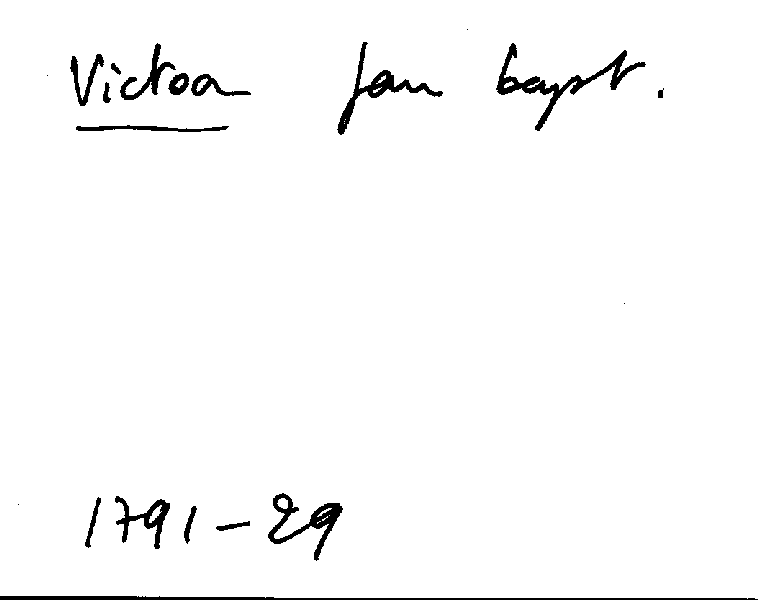 Victoa Jan bapst.
1791-29